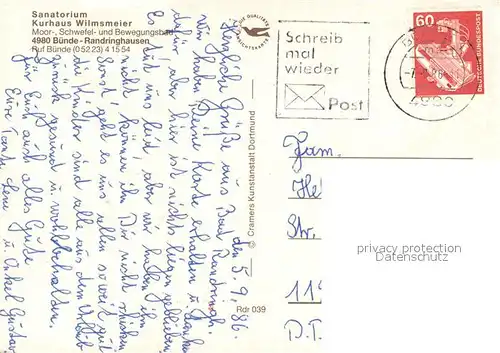 Sanatorium
Kurhaus Wilmsmeier
Moor-, Schwefel- und Bewegungsbad
4980 Bünde - Randringhausen
Ruf Bünde (0 52 23) 4 15 54
Schreib
mal
wieder
Post
60
DEUTSCHE BUNDESPOST
4980
den 5.9.86.
Herzliche Grüße aus Bad Randringh.
haben Deine Karte erhalten u. danken
aber hier ist nichts liegen geblieben
uns leid, aber wir
nicht können ihn Dir nicht schicken
Sonst geht es uns allen soweit gut
die Kinder sind alle aus dem Urlaub
gesund u. wohlbehalten.
Für Euch auch alles Gute
Eure Tante Lene u. Onkel Gustav
© Cramers Kunstanstalt Dortmund
Rdr 039
Fam.
He
Str.
11
D.T.
privacy protection
Datenschutz